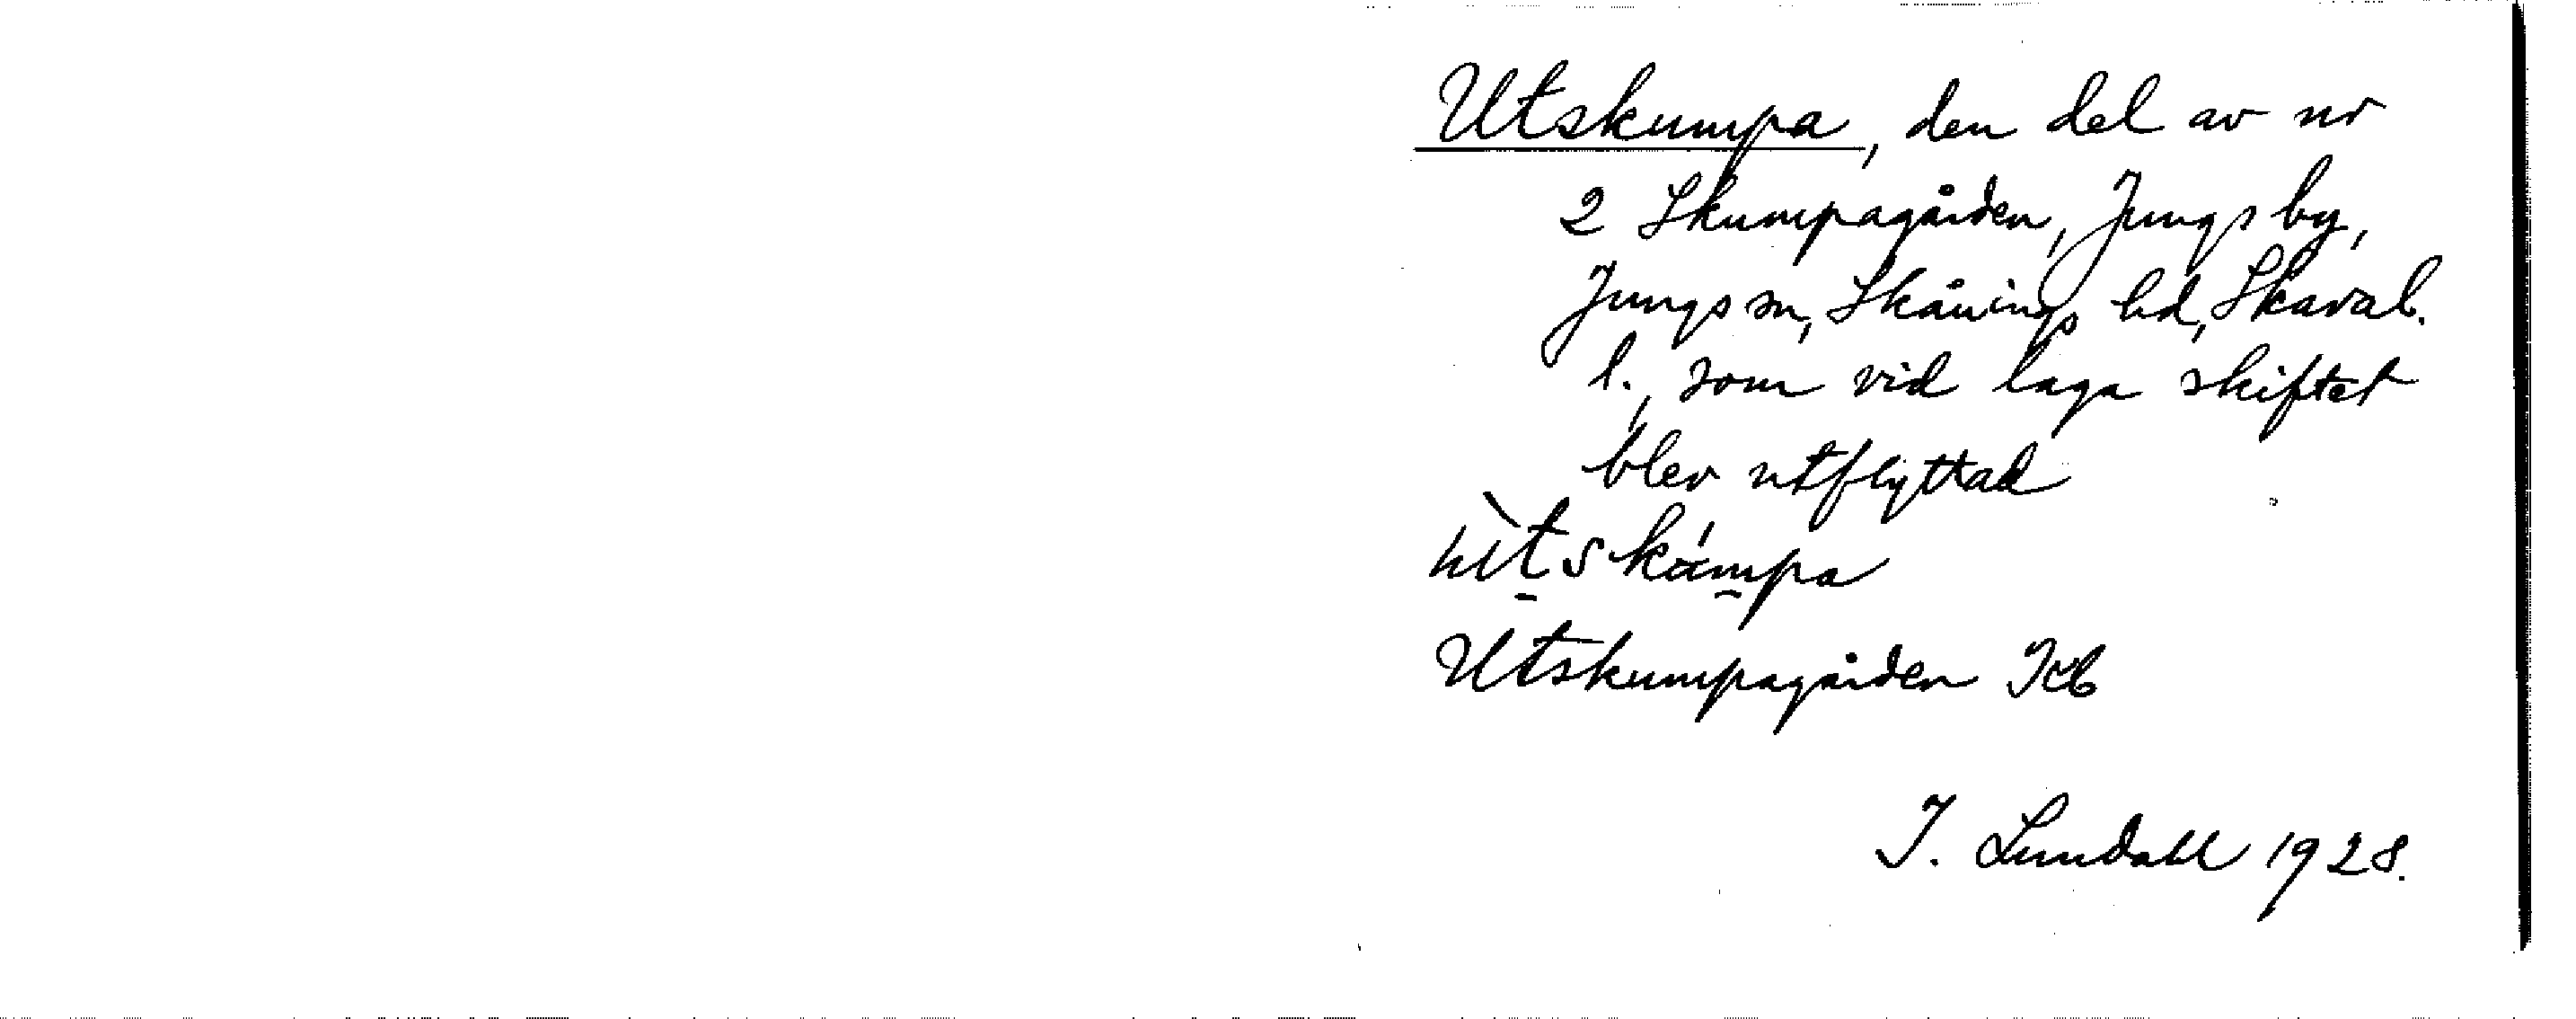 Utskumpa, den del av nr
2 Skumpagården, Jungs by,
Jungs sn, Skånings hd, Skarab.
l., som vid laga skiftet
blev utflyttad
Utskumpagården Jb
I. Lundahl 1928.